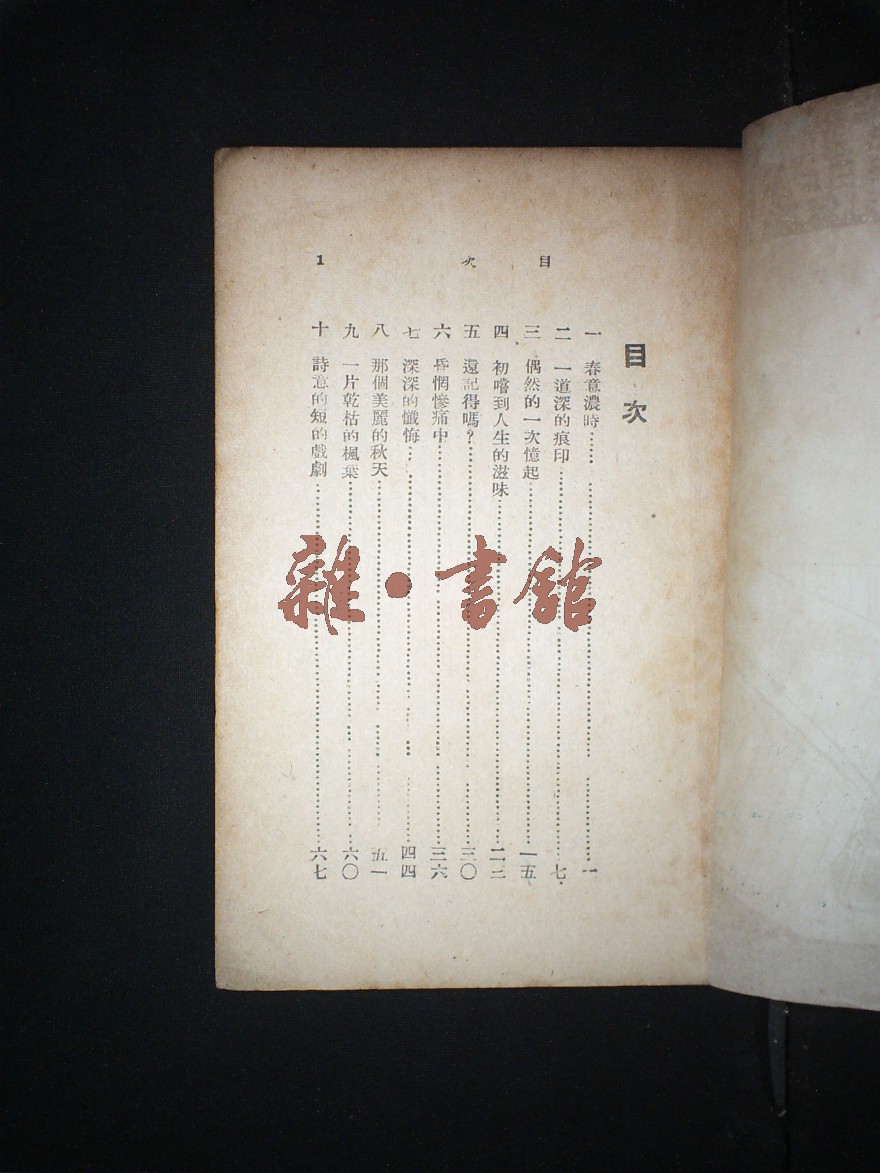 目次
1
目次
一 春意濃時……一
二 一道深的痕印……七
三 偶然的一次憶起……一五
四 初嚐到人生的滋味……二三
五 還記得嗎？……三〇
六 昏惘慘痛中……三六
七 深深的懺悔……四四
八 那個美麗的秋天……五一
九 一片乾枯的楓葉……六〇
十 詩意的短的戲劇……六七
雜·書館